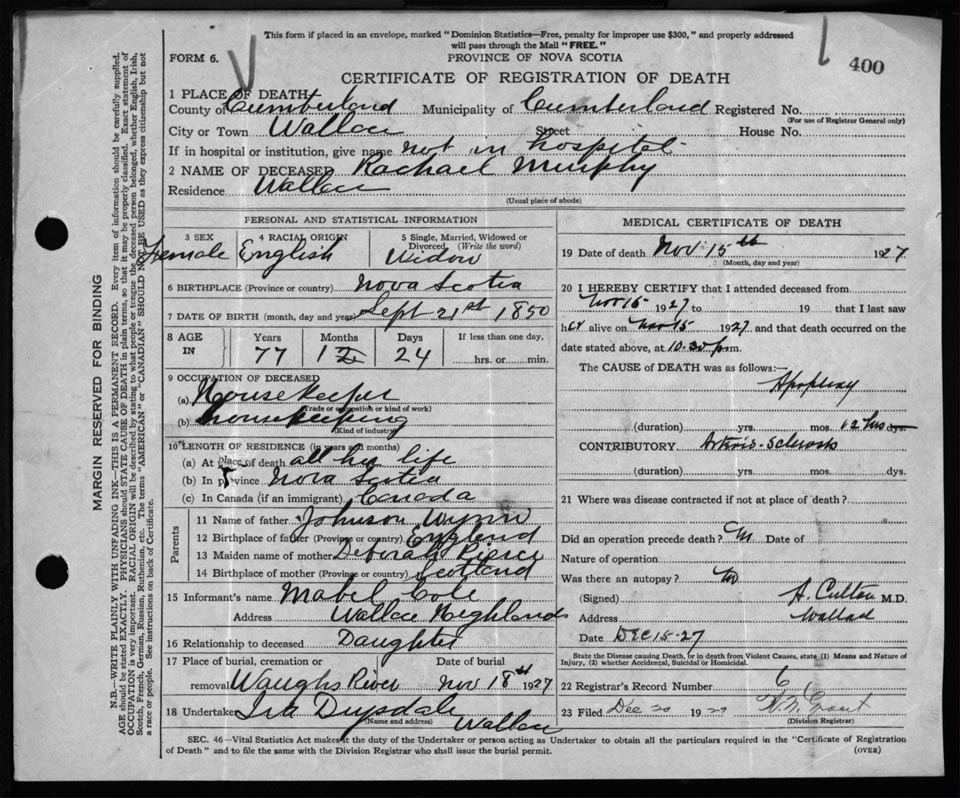 This form if placed in an envelope, marked "Dominion Statistics—Free, penalty for improper use $300," and properly addressed
will pass through the Mail "FREE."
400
FORM 6.
PROVINCE OF NOVA SCOTIA
CERTIFICATE OF REGISTRATION OF DEATH
1 PLACE OF DEATH
County of Cumberland Municipality of Cumberland Registered No.
(For use of Registrar General only)
City or Town Wallace Street House No.
If in hospital or institution, give name not in hospital
2 NAME OF DECEASED Rachael Murphy
Residence Wallace
(Usual place of abode)
PERSONAL AND STATISTICAL INFORMATION
3 SEX 4 RACIAL ORIGIN 5 Single, Married, Widowed or
Divorced, (Write the word)
Female English Widow
6 BIRTHPLACE (Province or country) Nova Scotia
7 DATE OF BIRTH (month, day and year) Sept 21st 1850
8 AGE IN Years Months Days If less than one day,
77 1 24 hrs. or min.
9 OCCUPATION OF DECEASED
(a) Housekeeper
(Trade or occupation or kind of work)
(b) housekeeping
(Kind of industry)
10 LENGTH OF RESIDENCE (in years and months)
(a) At place of death all her life
(b) In province Nova Scotia
(c) In Canada (if an immigrant) Canada
Parents
11 Name of father Johnson Wynn
12 Birthplace of father (Province or country) England
13 Maiden name of mother Deborah Pierce
14 Birthplace of mother (Province or country) Scotland
15 Informant's name Mabel Cole
Address Wallace Highlands
16 Relationship to deceased Daughter
17 Place of burial, cremation or Date of burial
removal Waughs River Nov 18th 1927
18 Undertaker Ira Drysdale Wallace
(Name and address)
MEDICAL CERTIFICATE OF DEATH
19 Date of death Nov 15th 1927
(Month, day and year)
20 I HEREBY CERTIFY that I attended deceased from
Nov 15 1927 to 19 that I last saw
her alive on Nov 15 1927 and that death occurred on the
date stated above, at 10.30 p m.
The CAUSE of DEATH was as follows:—
Apoplexy
(duration) yrs. mos. 12 hrs dys.
CONTRIBUTORY Arterio-Sclerosis
(duration) yrs. mos. dys.
21 Where was disease contracted if not at place of death?
Did an operation precede death? No Date of
Nature of operation
Was there an autopsy? No
(Signed) M.D.
Address Wallace
Date Dec 15-27
State the Disease causing Death, or in death from Violent Causes, state (1) Means and Nature of
Injury, (2) whether Accidental, Suicidal or Homicidal.
22 Registrar's Record Number 6
23 Filed Dec 20 1927 Grant
(Division Registrar)
SEC. 46—Vital Statistics Act makes it the duty of the Undertaker or person acting as Undertaker to obtain all the particulars required in the "Certificate of Registration
of Death" and to file the same with the Division Registrar who shall issue the burial permit.
(OVER)
MARGIN RESERVED FOR BINDING
N.B.—WRITE PLAINLY WITH UNFADING INK—THIS IS A PERMANENT RECORD. Every item of information should be carefully supplied.
AGE should be stated EXACTLY. PHYSICIANS should STATE CAUSE OF DEATH in plain terms, so that it may be properly classified. Exact statement of
OCCUPATION is very important. RACIAL ORIGIN will be described by stating to what people or tongue the deceased person belonged, whether English, Irish,
Scotch, French, German, Russian, Ruthenian, etc. The terms "AMERICAN" or "CANADIAN" SHOULD NOT BE USED as they express citizenship but not
a race or people. See instructions on back of Certificate.